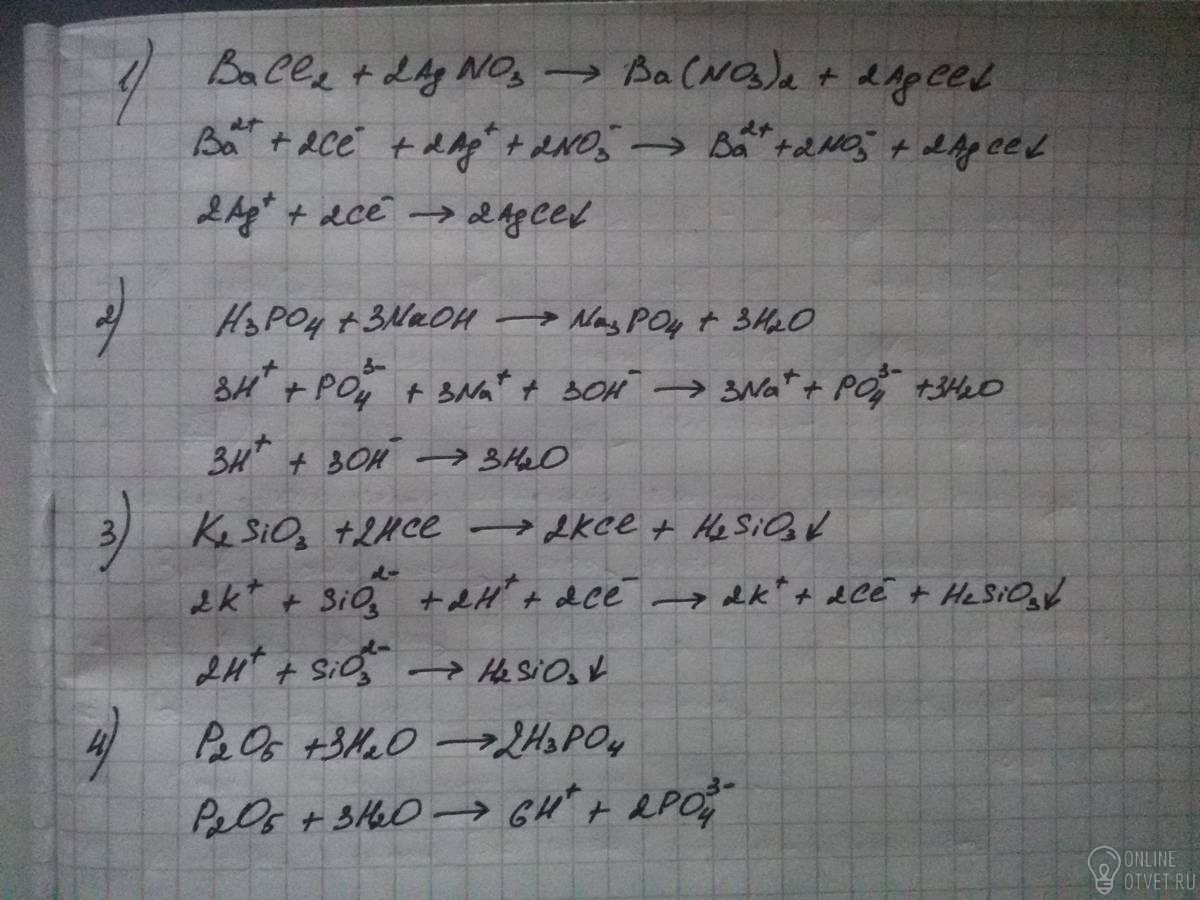 1) BaCl₂ + 2AgNO₃ → Ba(NO₃)₂ + 2AgCl↓
Ba²⁺ + 2Cl⁻ + 2Ag⁺ + 2NO₃⁻ → Ba²⁺ + 2NO₃⁻ + 2AgCl↓
2Ag⁺ + 2Cl⁻ → 2AgCl↓
2) H₃PO₄ + 3NaOH → Na₃PO₄ + 3H₂O
3H⁺ + PO₄³⁻ + 3Na⁺ + 3OH⁻ → 3Na⁺ + PO₄³⁻ + 3H₂O
3H⁺ + 3OH⁻ → 3H₂O
3) K₂SiO₃ + 2HCl → 2KCl + H₂SiO₃↓
2K⁺ + SiO₃²⁻ + 2H⁺ + 2Cl⁻ → 2K⁺ + 2Cl⁻ + H₂SiO₃↓
2H⁺ + SiO₃²⁻ → H₂SiO₃↓
4) P₂O₅ + 3H₂O → 2H₃PO₄
P₂O₅ + 3H₂O → 6H⁺ + 2PO₄³⁻
ONLINE
OTVET.RU